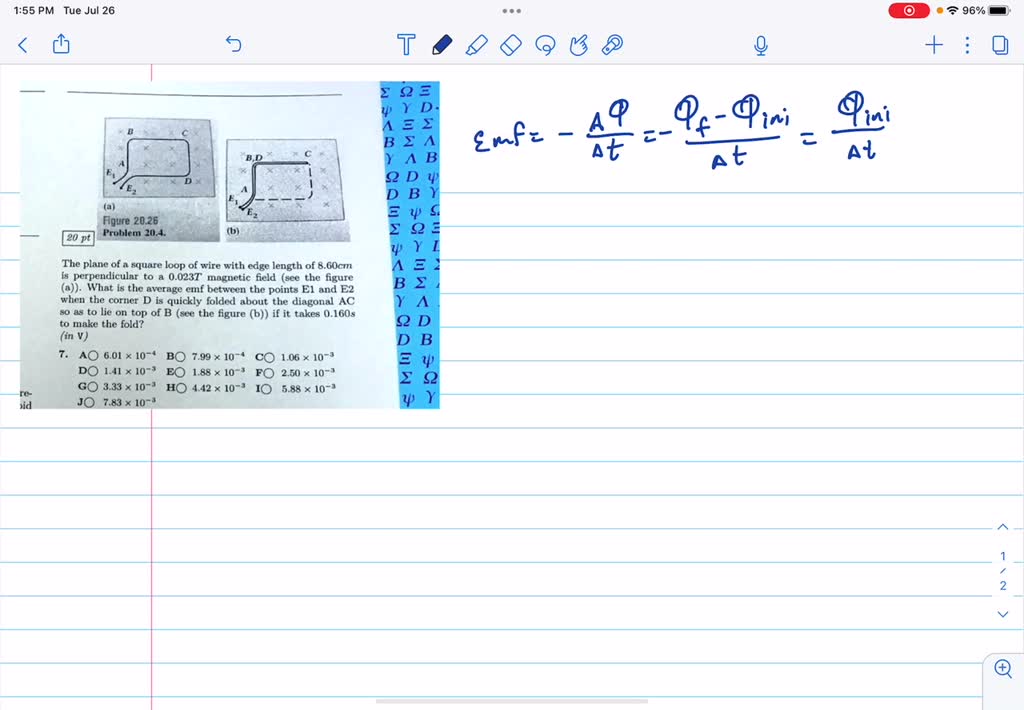 1:55 PM Tue Jul 26
96%
T
Σ Ω Ξ
ψ Υ D
Λ Ξ Σ
B Σ Λ
Υ Λ B
Ω D ψ
D B Υ
Ξ ψ Ω
Σ Ω Ξ
ψ Υ
Λ Ξ Σ
B Σ
Υ Λ
Ω D
D B
Ξ ψ
Σ Ω
ψ Υ
B C
A
E₁
E₂ D
(a)
Figure 20.26
Problem 20.4.
B,D C
A
E₁
E₂
(b)
20 pt
The plane of a square loop of wire with edge length of 8.60cm
is perpendicular to a 0.023T magnetic field (see the figure
(a)). What is the average emf between the points E1 and E2
when the corner D is quickly folded about the diagonal AC
so as to lie on top of B (see the figure (b)) if it takes 0.160s
to make the fold?
(in V)
7. A○ 6.01 × 10⁻⁴ B○ 7.99 × 10⁻⁴ C○ 1.06 × 10⁻³
D○ 1.41 × 10⁻³ E○ 1.88 × 10⁻³ F○ 2.50 × 10⁻³
G○ 3.33 × 10⁻³ H○ 4.42 × 10⁻³ I○ 5.88 × 10⁻³
J○ 7.83 × 10⁻³
re-
oid
Emf = - ΔΦ/Δt = - Φf - Φini/Δt = Φini/Δt
1
/
2